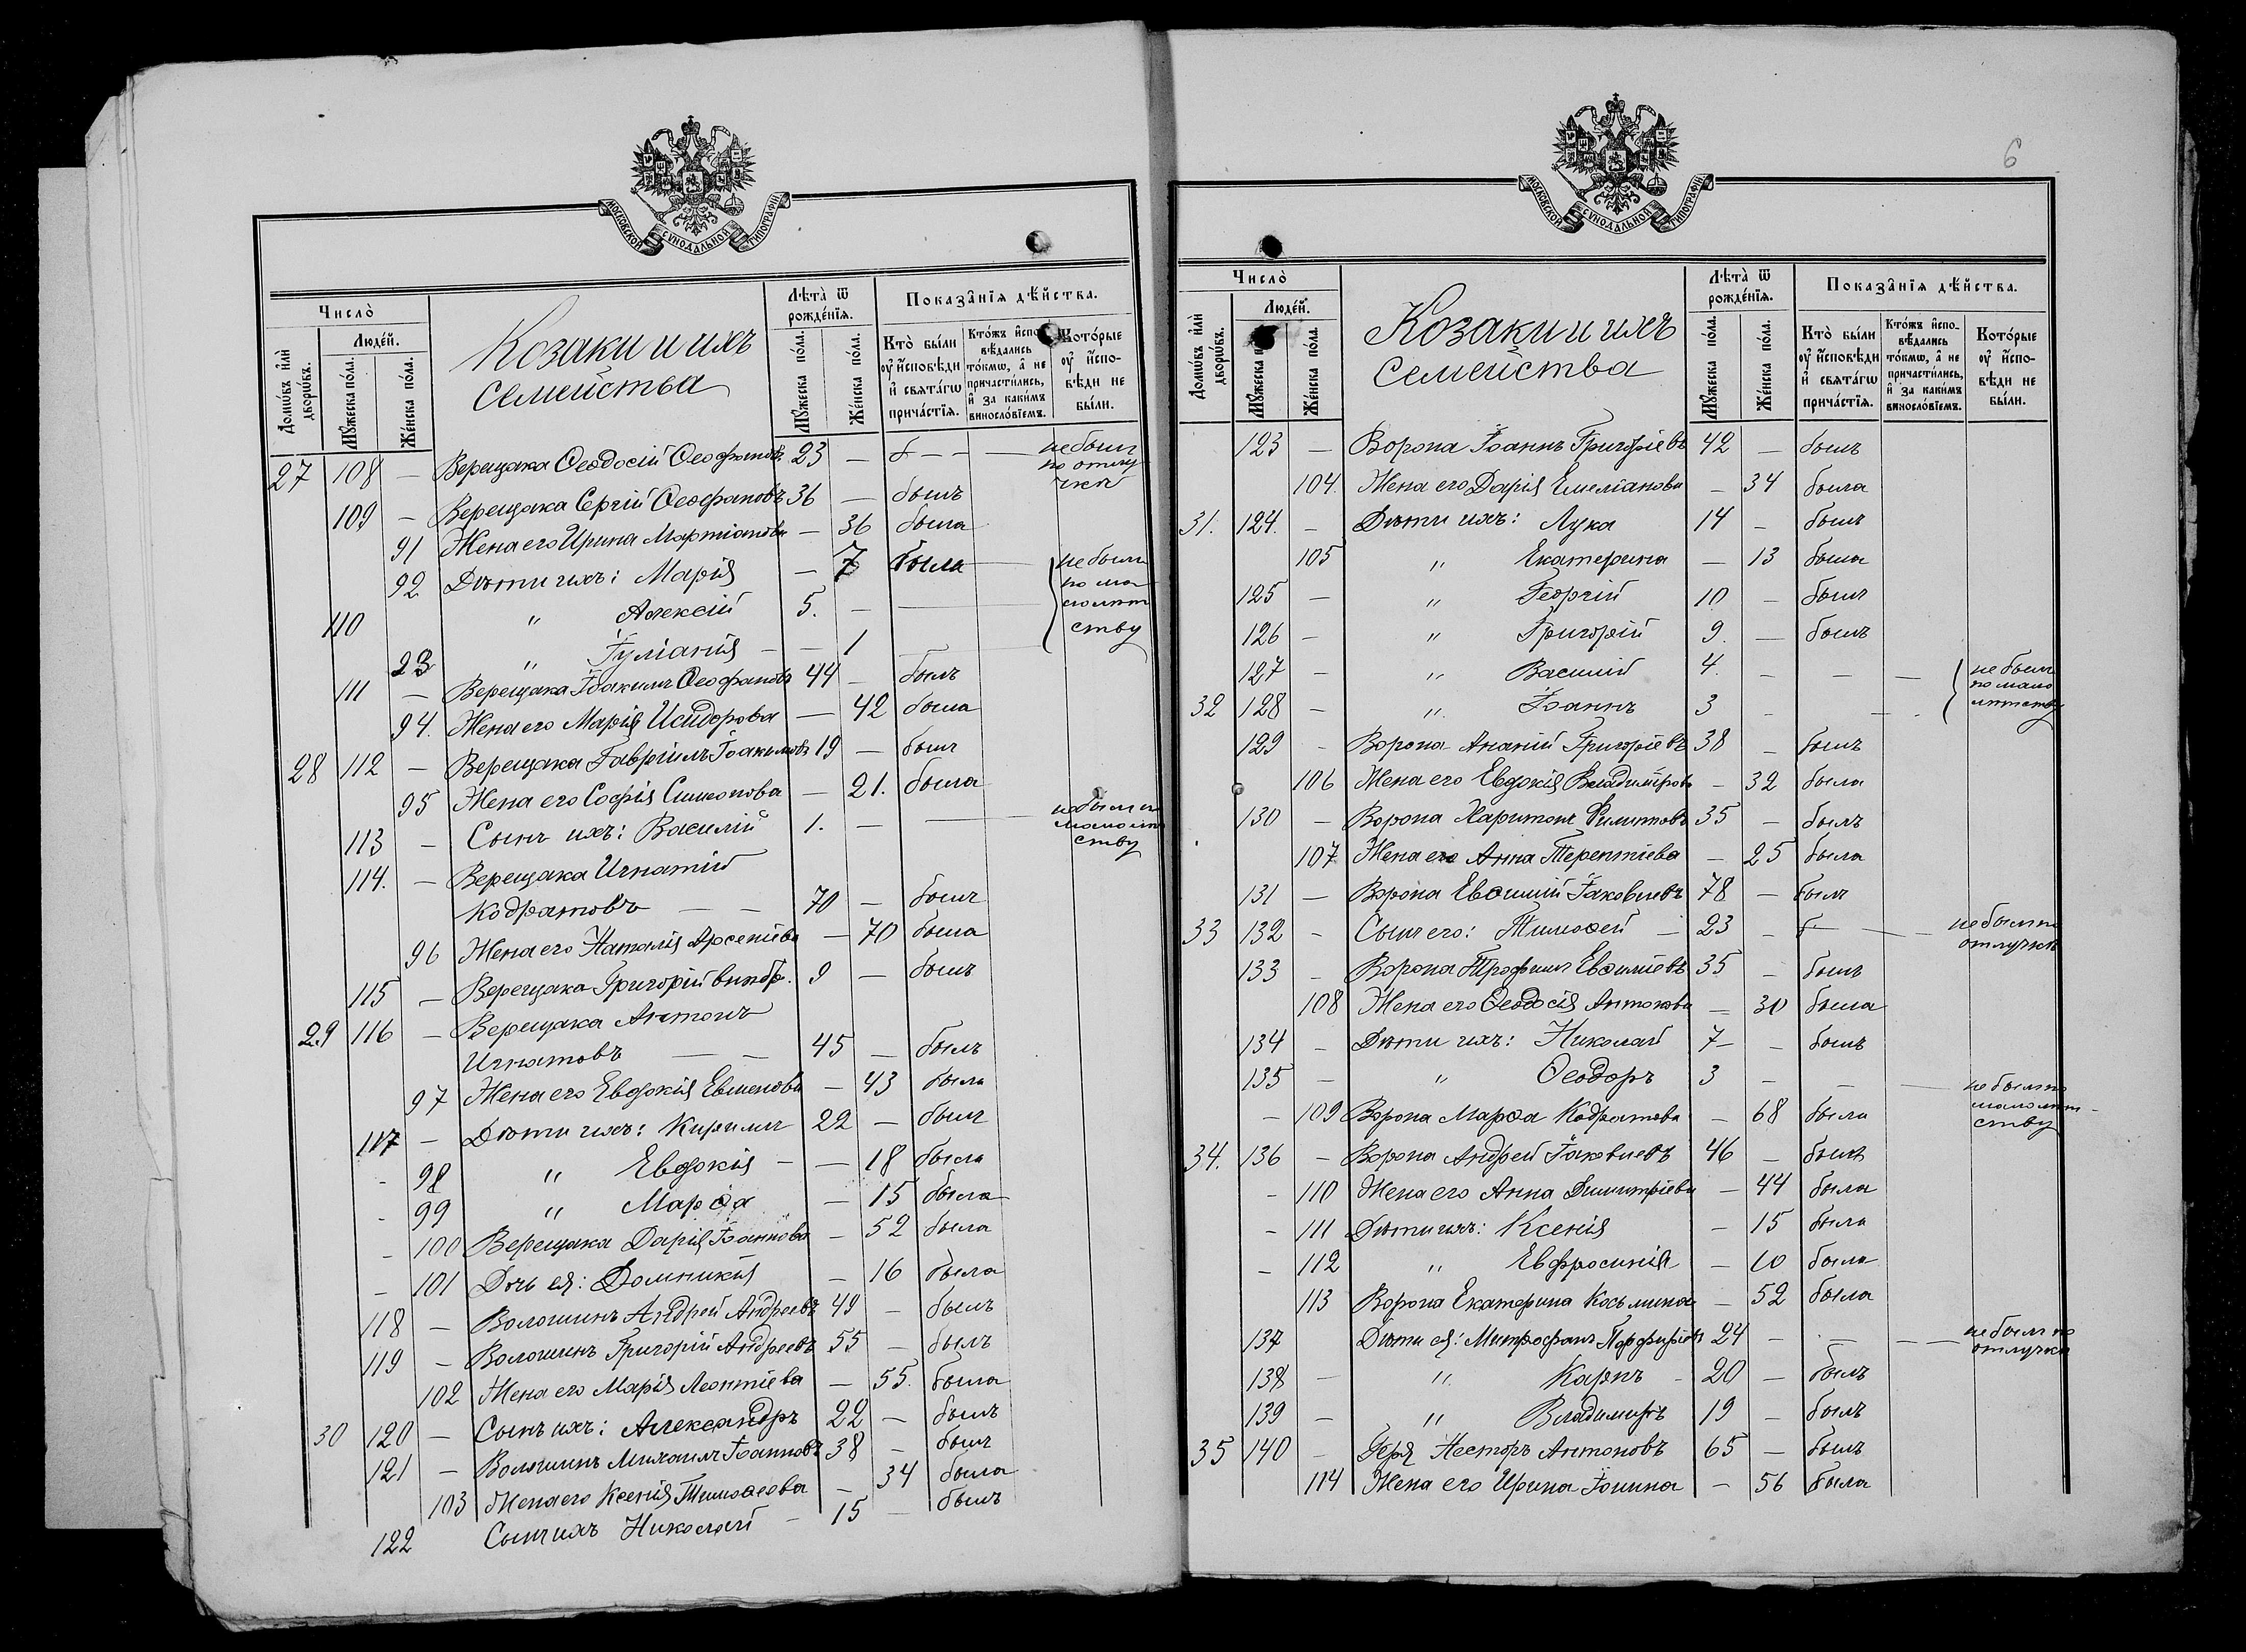 МОСКОВСКОЙ СѴНОДАЛЬНОЙ ТИПОГРАФІИ
Число̀
Люде́й.
Домѡ́въ и҆лѝ дворѡ́въ.
Мꙋ́жеска по́ла.
Же́нска по́ла.
Козаки и ихъ
Семейства
Лѣ́та ѿ рожде́нїѧ.
Мꙋ́жеска по́ла.
Же́нска по́ла.
Показа̑нїѧ дѣ́йства.
Кто̀ бы́ли ᲂу҆ и҆́сповѣди и҆ свѧта́гѡ прича́стїѧ.
Кто́жъ и҆спо- вѣ́дались то́кмѡ, а҆ не причасти́лись, и҆ за каки́мъ винословїемъ.
Кото́рые ᲂу҆ и҆́спо- вѣди не бы́ли.
27 108 — Верещака Ѳеодосій Ѳеофановъ 23 — б — — — не былъ
по отлу
чкѣ
109 — Верещака Сергій Ѳеофановъ 36 — былъ
91 Жена его Ирина Мартіанова — 36 была
92 Дѣти ихъ: Марія — 7 была — не были
по ма
110 „ Алексій 5. — — лолѣт
ству
93 „ Іуліанія — — 1 —
111 — Верещака Іоакимъ Ѳеофановъ 44 — былъ
94. Жена его Марія Исидорова — 42 была
28 112 — Верещака Гавріилъ Іоакимовъ 19 — былъ
95 Жена его Софія Симеонова — 21. была
113 — Сынъ ихъ: Василій 1. — — — не былъ по
малолѣт
ству
114. — Верещака Игнатій
Кодратовъ — — 70 — былъ
96 Жена его Наталія Арсеніева — 70 была
115 — Верещака Григорій внѣбр. 9 — былъ
29 116 — Верещака Антонъ
Игнатовъ — — 45 — былъ
97 Жена его Евдокія Евменова — 43 была
117 — Дѣти ихъ: Кириллъ 22 — былъ
98 „ Евдокія — — 18 была
99 „ Марѳа — 15 была
100 Верещака Дарія Іоаннова — 52 была
101 Дочь ея: Домникія — 16 была
118 — Волошинъ Андрей Андреевъ 49 — былъ
119 — Волошинъ Григорій Андреевъ 55 — былъ
102 Жена его Марія Леонтіева — 55. была
30 120 — Сынъ ихъ: Александръ 22 — былъ
121 — Волошинъ Михаилъ Іоанновъ 38 — былъ
103 Жена его Ксенія Тимоѳеева — 34 была
122 Сынъ ихъ Николай — 15 — былъ
6
МОСКОВСКОЙ СѴНОДАЛЬНОЙ ТИПОГРАФІИ
Число̀
Люде́й.
Домѡ́въ и҆лѝ дворѡ́въ.
Мꙋ́жеска
Же́нска по́ла.
Козаки и ихъ
Семейства
Лѣ́та ѿ рожде́нїѧ.
Мꙋ́жеска по́ла.
Же́нска по́ла.
Показа̑нїѧ дѣ́йства.
Кто̀ бы́ли ᲂу҆ и҆́сповѣди и҆ свѧта́гѡ прича́стїѧ.
Кто́жъ и҆спо- вѣ́дались то́кмѡ, а҆ не причасти́лись, и҆ за каки́мъ винословїемъ.
Кото́рые ᲂу҆ и҆́спо- вѣди не бы́ли.
123 — Ворона Іоаннъ Григоріевъ 42 — былъ
104. Жена его Дарія Емеліанова — 34 была
31. 124. — Дѣти ихъ: Лука 14 — былъ
105 „ Екатерина — 13 была
125 — „ Георгій 10 — былъ
126 — „ Григорій 9. — былъ
127 — „ Василій 4. — — — не были
по мало
32 128 — „ Іоаннъ 3 — — лѣтству
129 — Ворона Ананій Григоріевъ 38 — былъ
106 Жена его Евдокія Владимірова — 32 была
130 — Ворона Харитонъ Филиповъ 35 — былъ
107 Жена его Анна Терентіева — 25 была
131 — Ворона Евѳимій Іаковлевъ 78 — былъ
33 132 — Сынъ его: Тимоѳей — 23 — б — — не былъ по
отлучкѣ
133 — Ворона Трофимъ Евѳиміевъ 35 — былъ
108 Жена его Ѳеодосія Антонова — 30 была
134 — Дѣти ихъ: Николай 7 — — былъ
135 — „ Ѳеодоръ 3 — — — не былъ по
малолѣт-
ству
— 109 Ворона Марѳа Кодратова — 68 была
34. 136 — Ворона Андрей Іаковлевъ 46 — былъ
— 110 Жена его Анна Димитріева — 44 была
— 111 Дѣти ихъ: Ксенія — 15 была
— 112 „ Евфросинія — 10 была
113 Ворона Екатерина Косьмина — 52 была
137 Дѣти ея: Митрофанъ Порфиріевъ 24 — — — не былъ по
отлучкѣ
138 — „ Карпъ — 20 — былъ
139 — „ Владиміръ 19 — былъ
35 140 — Несторъ Антоновъ 65 — былъ
114 Жена его Ирина Іонина — 56 была